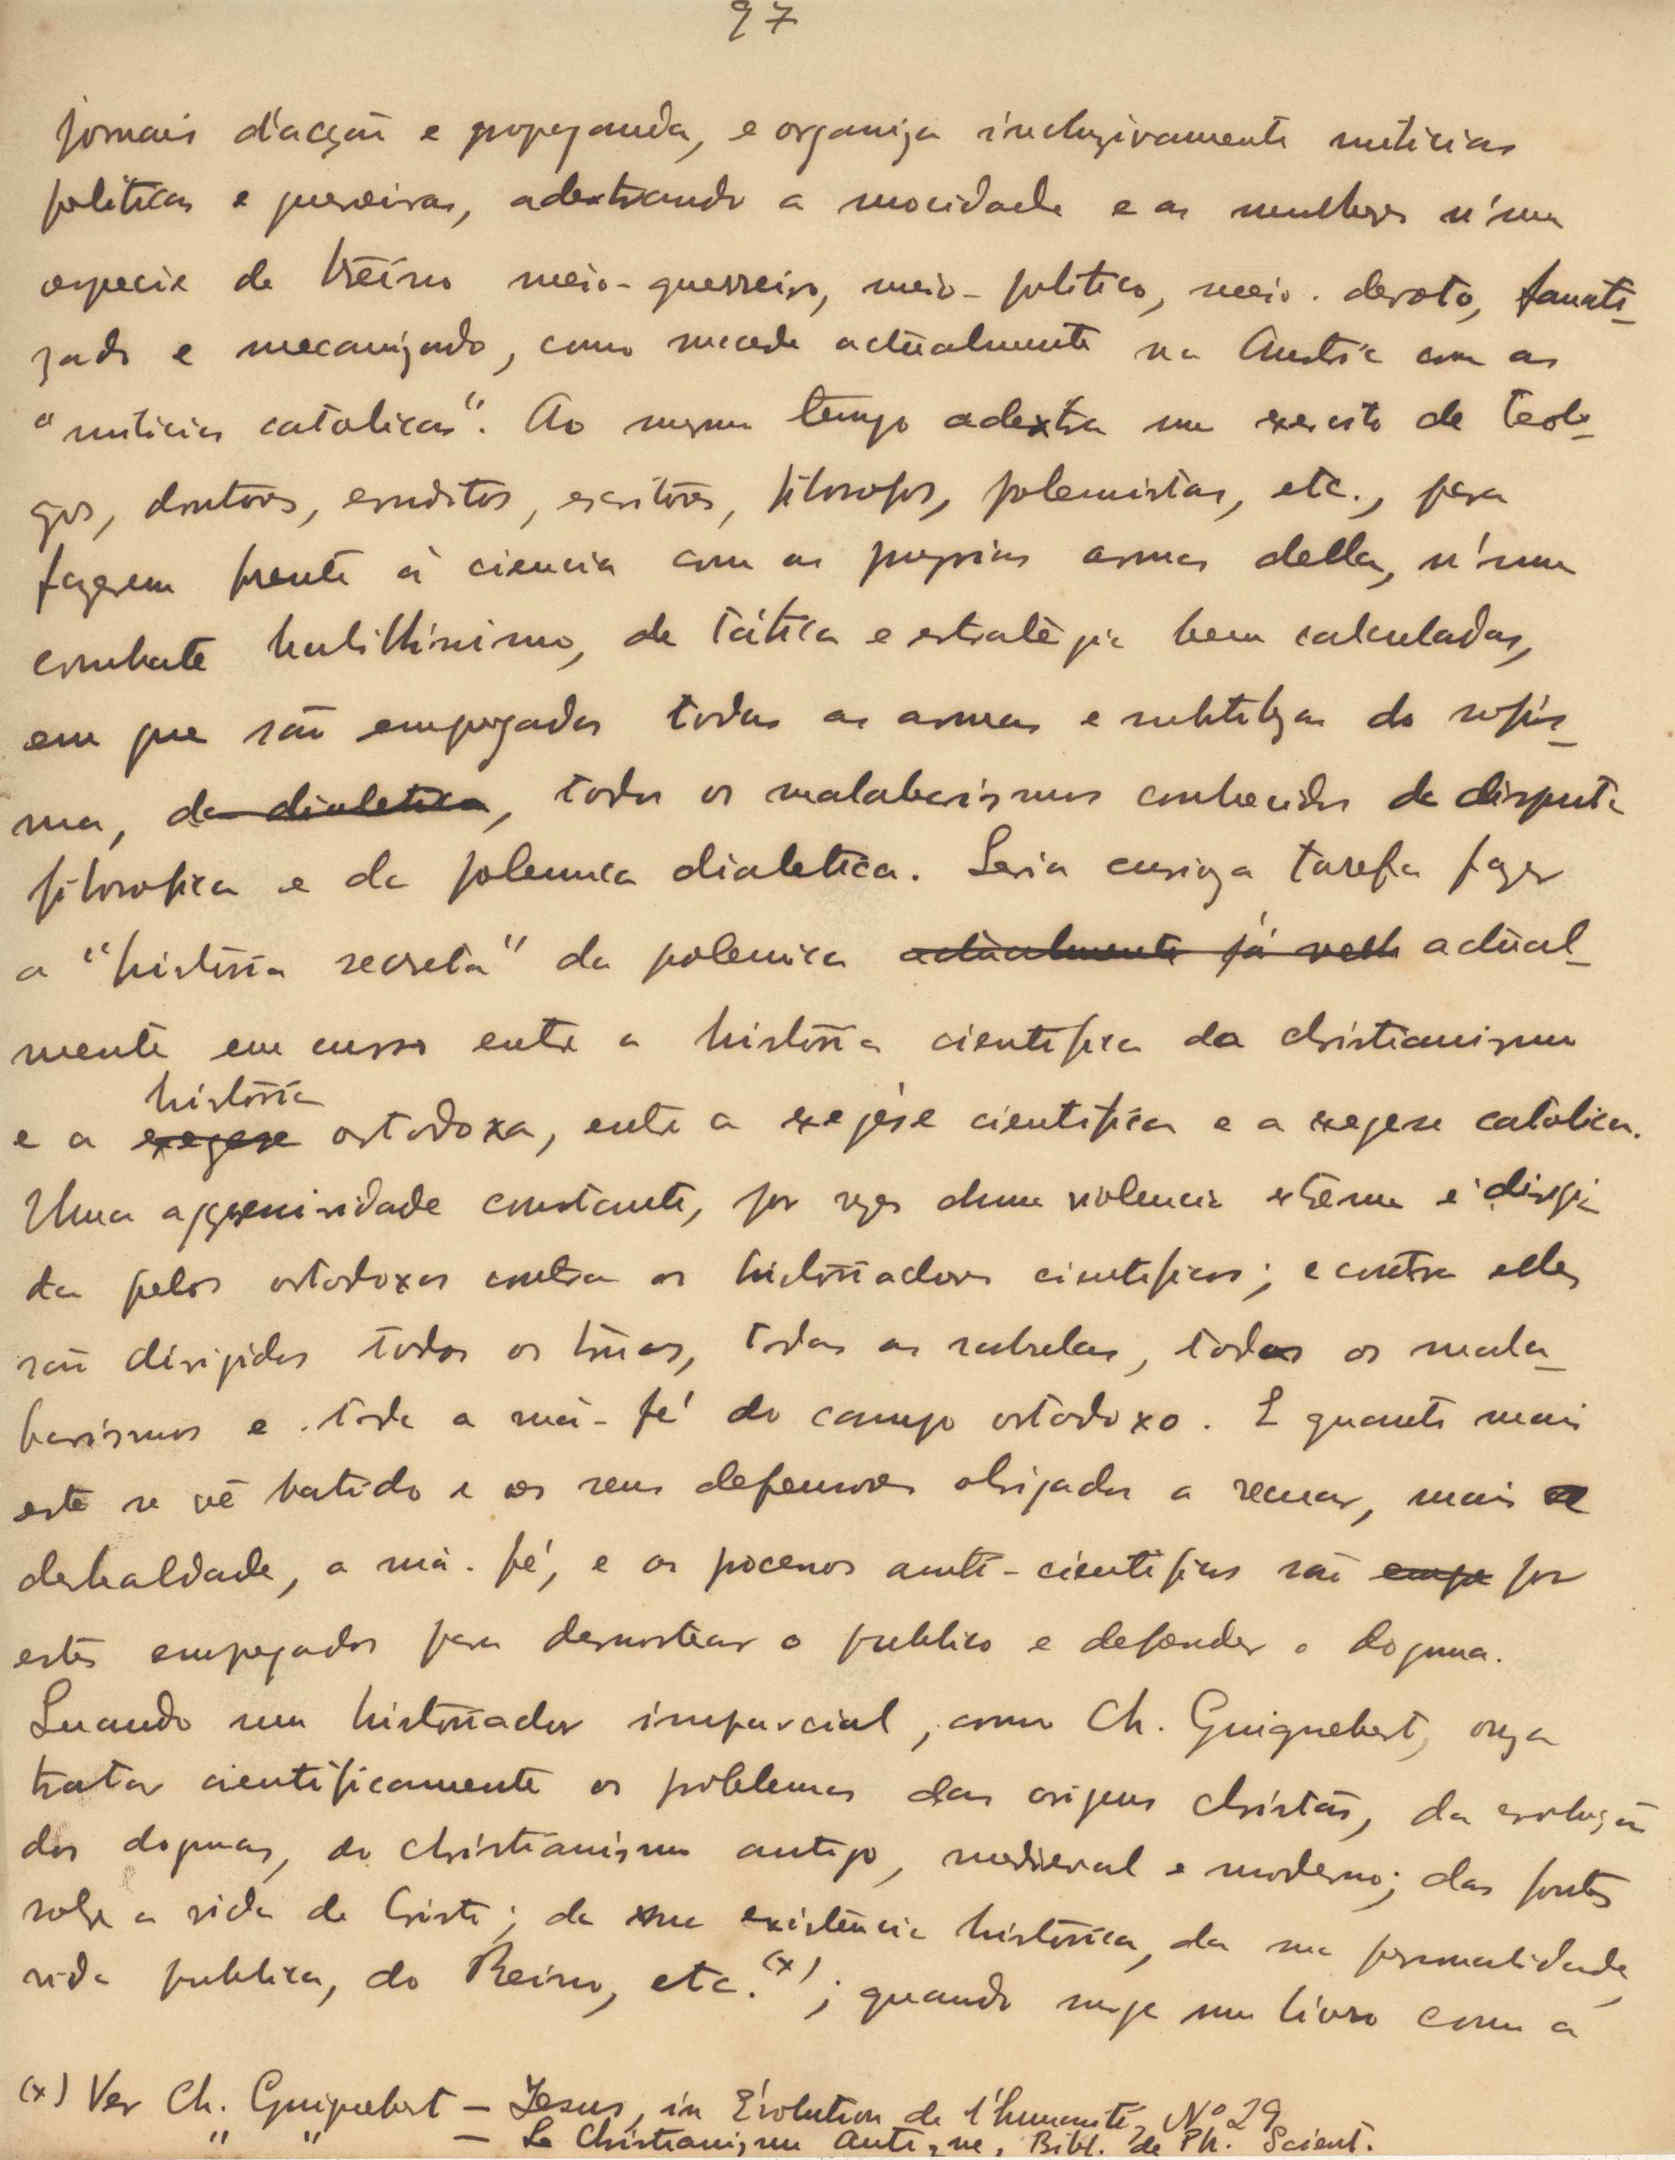 97
jornais d'acção e propaganda, e organiza incluzivamente miticias
politicas e guerreiras, adextrando a mocidade e as mulheres n'uma
especie de treino meio-guerreiro, meio-politico, meio-devoto, fanati-
zado e mecanizado, como sucede actualmente na Austria com as
"miticias catolicas". Ao mesmo tempo adextra um exercito de teolo-
gos, doutores, eruditos, escritores, filosofos, polemistas, etc., para
fazerem frente á ciencia com as proprias armas della, n'um
combate subtilissimo, de tática e estratègia bem calculadas,
em que são empregadas todas as armas e subtilezas do sofis-
ma, da dialetica, todos os malabarismos conhecidos da disputa
filosofica e da polemica dialetica. Seria curioza tarefa fazer
a "história secreta" da polemica actualmente já actual-
mente em curso entre a história cientifica do christianismo
história
e a exegese ortodoxa, entre a exegése cientifica e a exegese catolica.
Uma aggressividade constante, por vezes duma violencia extrema é dirigi
da pelos ortodoxos contra os historiadores cientificos; e contra elles
são dirigidos todos os tiros, todas as todos os mala-
barismos e toda a má-fé do campo ortodoxo. E quanto mais
este se vê batido e os seus defensores obrigados a recuar, mais a
deslealdade, a má-fé, e os processos anti-cientificos são empe por
estes empregados para desnortear o publico e defender o dogma.
Quando um historiador imparcial, como Ch. Guignebert, ouza
tratar cientificamente os problemas das origens christãs, da evolução
dos dogmas, do christianismo antigo, medieval e moderno; das fontes
sobre a vida de Cristo; da sua existência histórica, da sua personalidade,
vida publica, do Reino, etc.(x); quando surge um livro como a
(x) Ver Ch. Guignebert – Jesus, in Évolution de l'humanité, Nº 29
" " – Le Christianisme Antique, Bibl. de Ph. Scient.